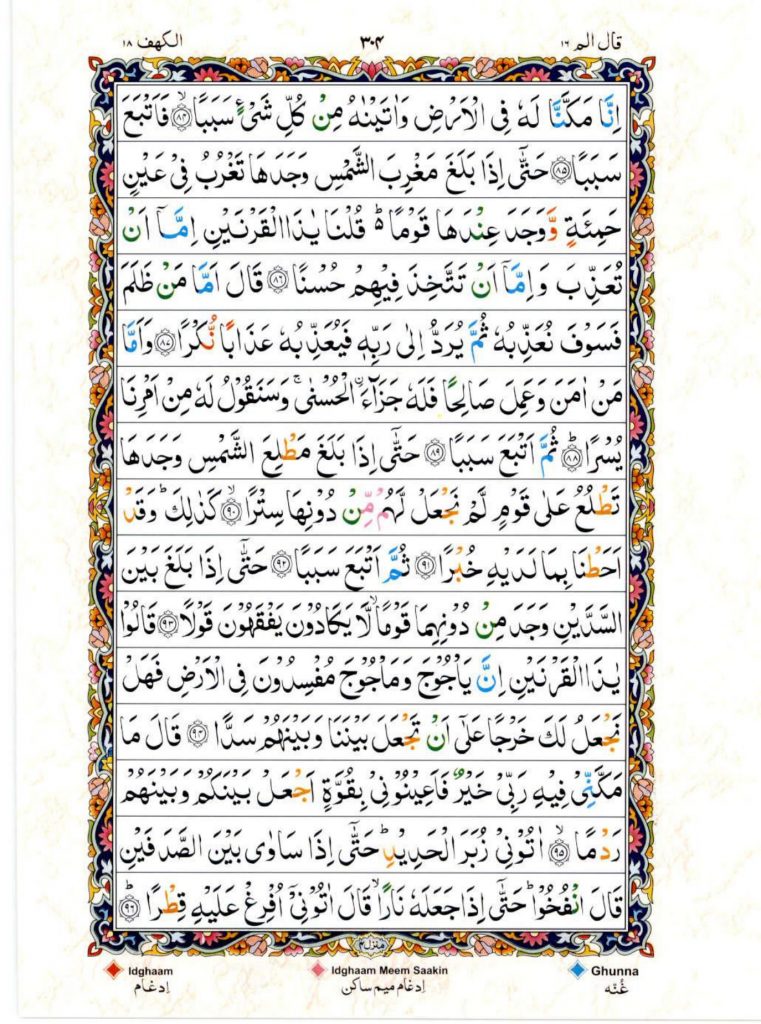 قال الم ١٦ ٣٠٤ الكهف ١٨
اِنَّا مَكَّنَّا لَهٗ فِی الْاَرْضِ وَاٰتَیْنٰهُ مِنْ كُلِّ شَیْءٍ سَبَبًا ۙ﴿۸۴﴾ فَاَتْبَعَ
سَبَبًا ﴿۸۵﴾ حَتّٰۤی اِذَا بَلَغَ مَغْرِبَ الشَّمْسِ وَجَدَهَا تَغْرُبُ فِیْ عَیْنٍ
حَمِئَةٍ وَّوَجَدَ عِنْدَهَا قَوْمًا ؕ۬ قُلْنَا یٰذَا الْقَرْنَیْنِ اِمَّاۤ اَنْ
تُعَذِّبَ وَاِمَّاۤ اَنْ تَتَّخِذَ فِیْهِمْ حُسْنًا ﴿۸۶﴾ قَالَ اَمَّا مَنْ ظَلَمَ
فَسَوْفَ نُعَذِّبُهٗ ثُمَّ یُرَدُّ اِلٰی رَبِّهٖ فَیُعَذِّبُهٗ عَذَابًا نُّكْرًا ﴿۸۷﴾ وَاَمَّا
مَنْ اٰمَنَ وَعَمِلَ صَالِحًا فَلَهٗ جَزَآءَ اِۨلْحُسْنٰی ۚ وَسَنَقُوْلُ لَهٗ مِنْ اَمْرِنَا
یُسْرًا ؕ﴿۸۸﴾ ثُمَّ اَتْبَعَ سَبَبًا ﴿۸۹﴾ حَتّٰۤی اِذَا بَلَغَ مَطْلِعَ الشَّمْسِ وَجَدَهَا
تَطْلُعُ عَلٰی قَوْمٍ لَّمْ نَجْعَلْ لَّهُمْ مِّنْ دُوْنِهَا سِتْرًا ۙ﴿۹۰﴾ كَذٰلِكَ ؕ وَقَدْ
اَحَطْنَا بِمَا لَدَیْهِ خُبْرًا ﴿۹۱﴾ ثُمَّ اَتْبَعَ سَبَبًا ﴿۹۲﴾ حَتّٰۤی اِذَا بَلَغَ بَیْنَ
السَّدَّیْنِ وَجَدَ مِنْ دُوْنِهِمَا قَوْمًا ۙ لَّا یَكَادُوْنَ یَفْقَهُوْنَ قَوْلًا ﴿۹۳﴾ قَالُوْا
یٰذَا الْقَرْنَیْنِ اِنَّ یَاْجُوْجَ وَمَاْجُوْجَ مُفْسِدُوْنَ فِی الْاَرْضِ فَهَلْ
نَجْعَلُ لَكَ خَرْجًا عَلٰۤی اَنْ تَجْعَلَ بَیْنَنَا وَبَیْنَهُمْ سَدًّا ﴿۹۴﴾ قَالَ مَا
مَكَّنِّیْ فِیْهِ رَبِّیْ خَیْرٌ فَاَعِیْنُوْنِیْ بِقُوَّةٍ اَجْعَلْ بَیْنَكُمْ وَبَیْنَهُمْ
رَدْمًا ۙ﴿۹۵﴾ اٰتُوْنِیْ زُبَرَ الْحَدِیْدِ ؕ حَتّٰۤی اِذَا سَاوٰی بَیْنَ الصَّدَفَیْنِ
قَالَ انْفُخُوْا ؕ حَتّٰۤی اِذَا جَعَلَهٗ نَارًا ۙ قَالَ اٰتُوْنِیْۤ اُفْرِغْ عَلَیْهِ قِطْرًا ؕ﴿۹۶﴾
منزل ۴
Idghaam Idghaam Meem Saakin Ghunna
اِدغام اِدغام میم ساکن غُنّه